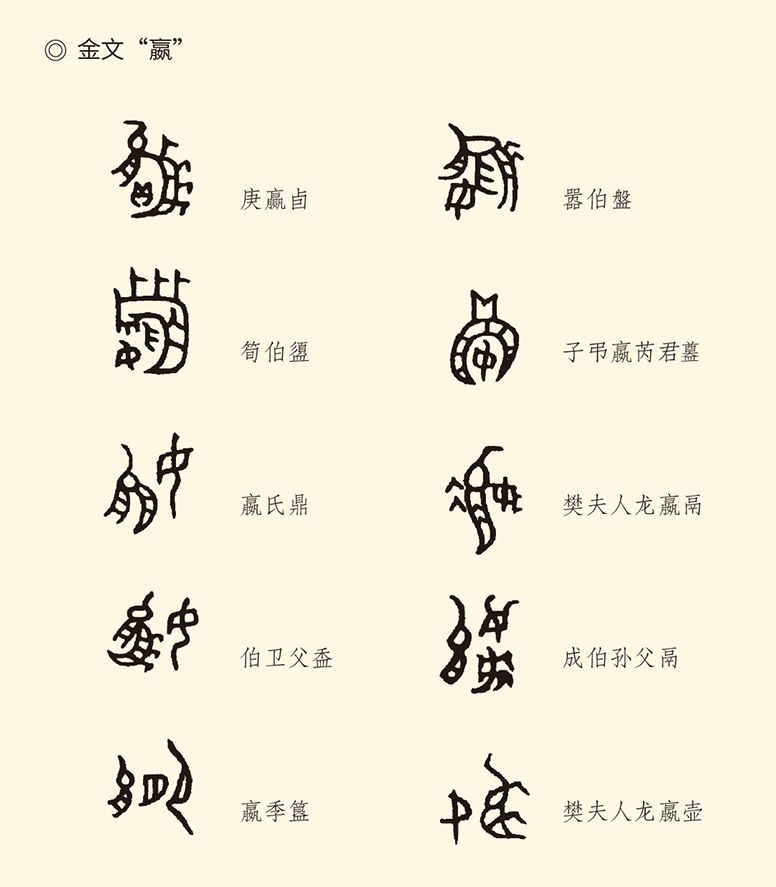 ◎ 金文“嬴”
庚嬴卣
嚣伯盤
筍伯盨
子弔嬴芮君䀇
嬴氏鼎
樊夫人龙嬴鬲
伯卫父盉
成伯孙父鬲
嬴季簋
樊夫人龙嬴壶